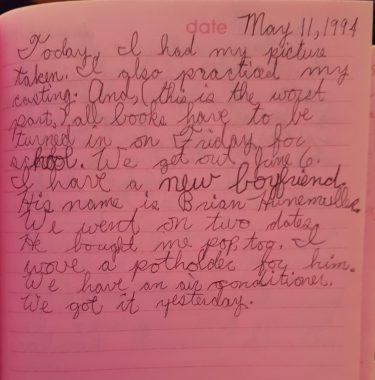 date May 11, 1994
Today, I had my picture
taken. I also practiced my
casting. And, (this is the worst
part,) all books have to be
turned in on Friday for
school. We get out June 6.
I have a new boyfriend.
His name is Brian
We went on two dates.
He bought me pop, too. I
wove a potholder for him.
We have an air conditioner.
We got it yesterday.